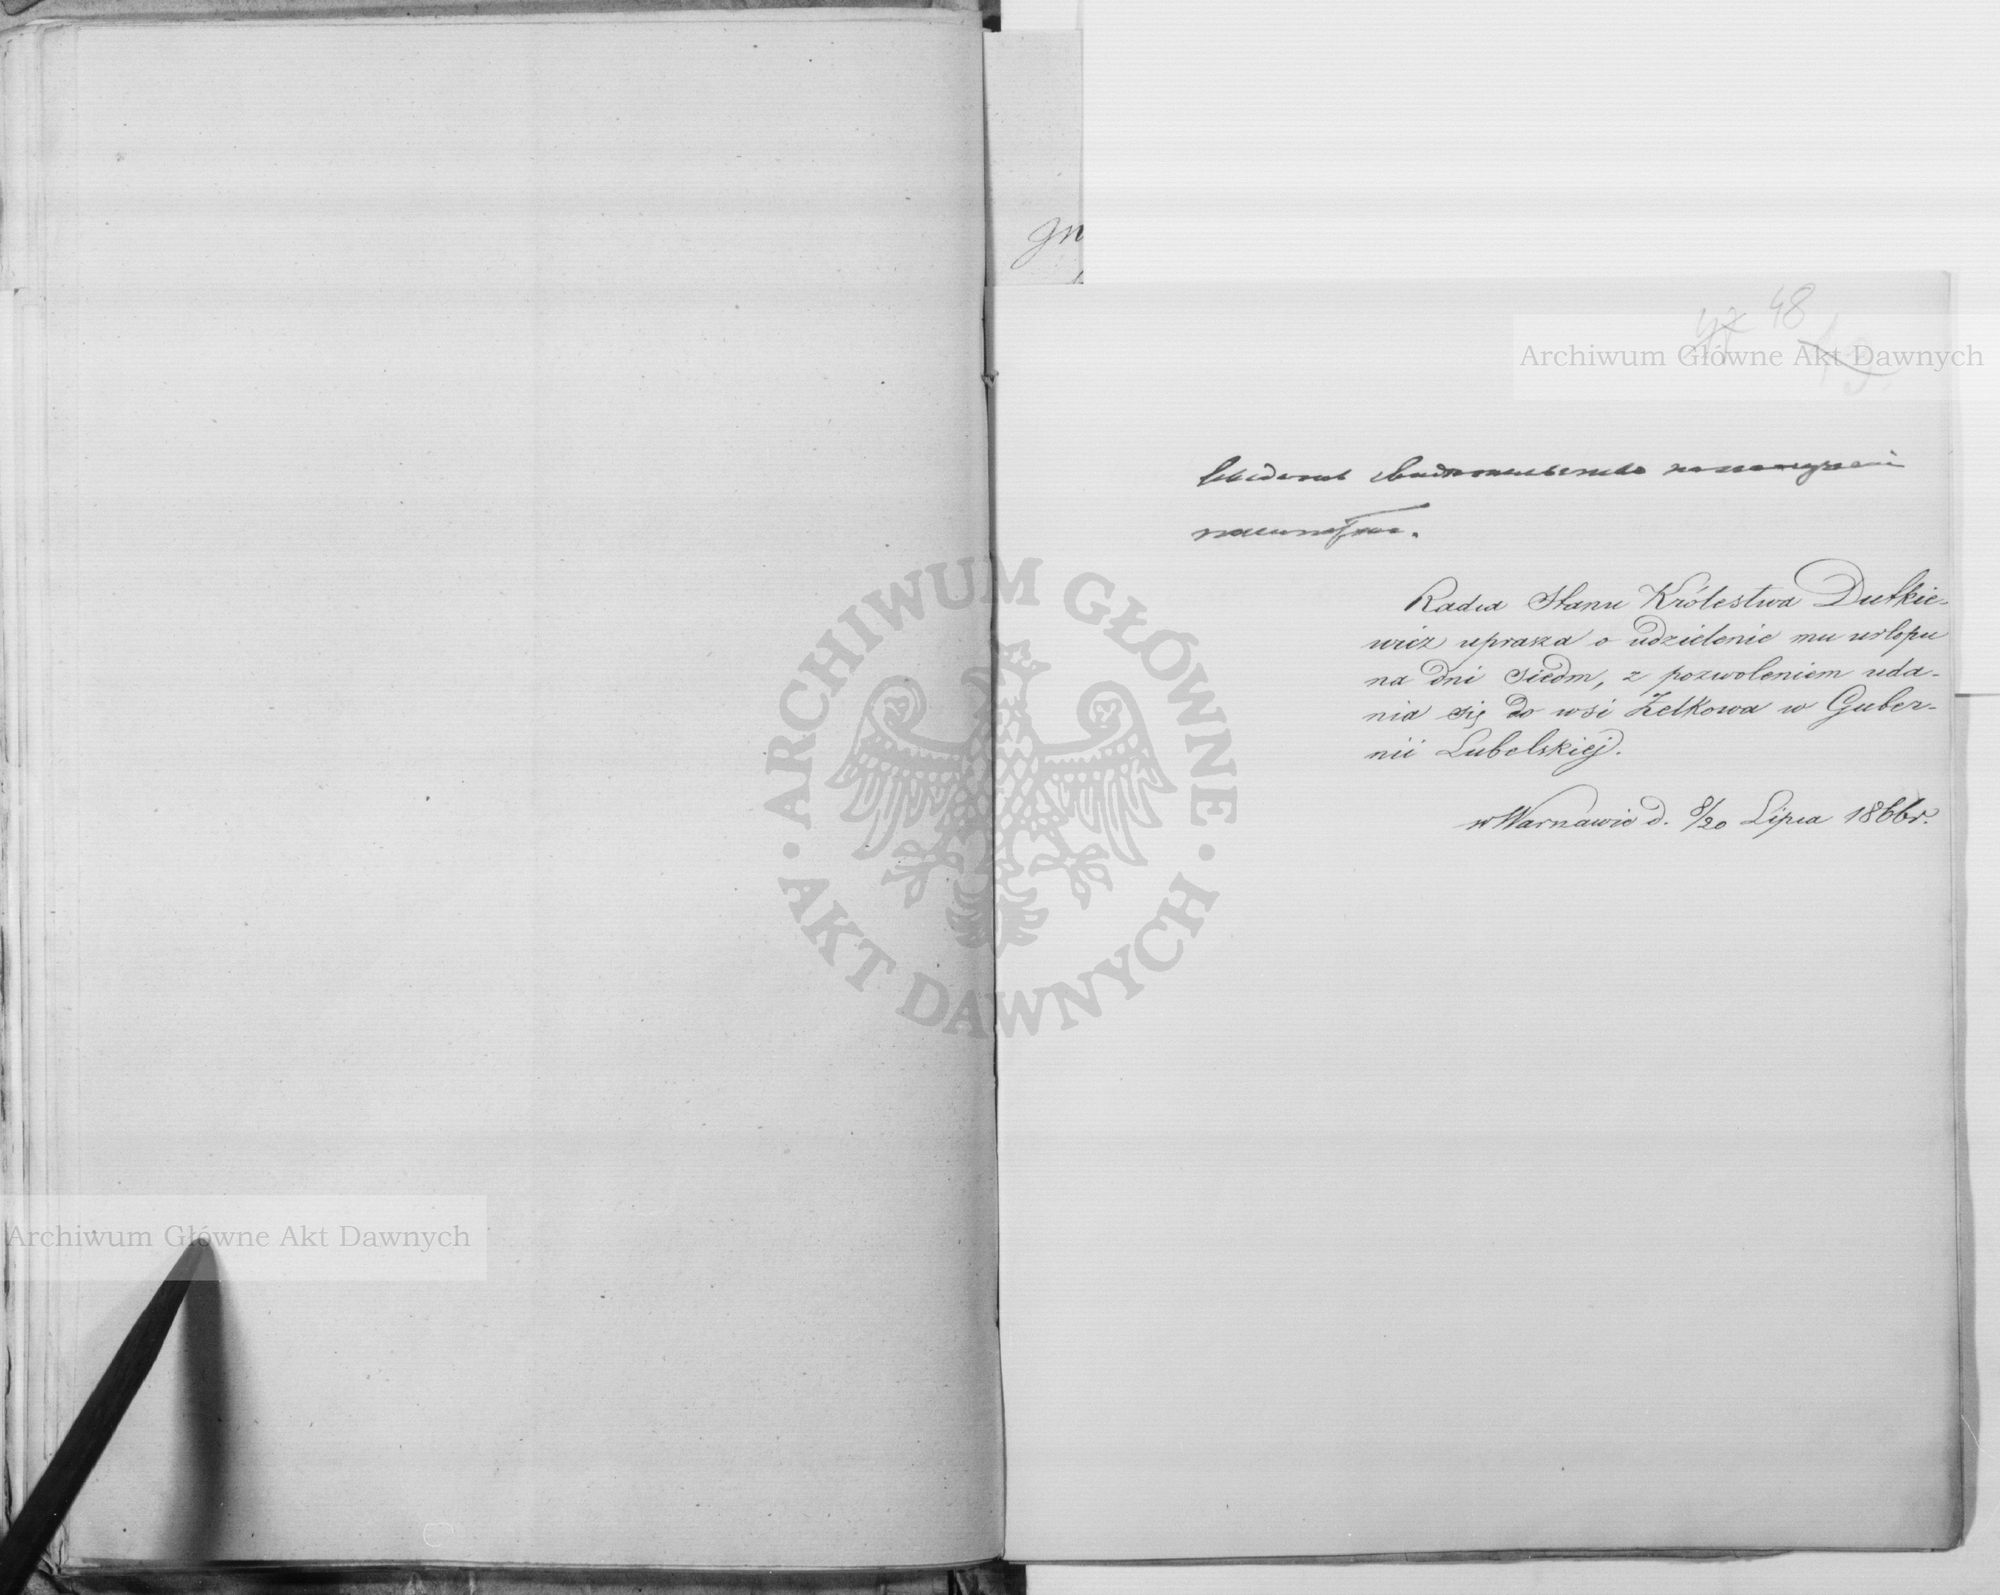 48
Radca Stanu Królestwa Dutkie-
wicz uprasza o udzielenie mu urlopu
na dni siedm, z pozwoleniem uda-
nia się do wsi Żelkowa w Guber-
nii Lubelskiej.
w Warszawie d. 8/20 Lipca 1866 r.
Archiwum Główne Akt Dawnych
ARCHIWUM GŁÓWNE
AKT DAWNYCH
Archiwum Główne Akt Dawnych